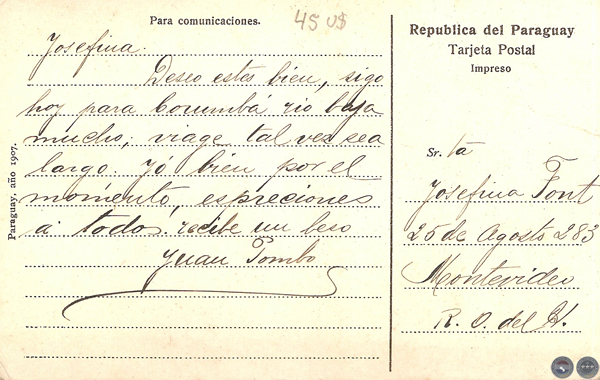 Para comunicaciones.
45 U$
Josefina:
Deseo estes bien, sigo
hoy para Corumba rio baja
mucho; viage tal vez sea
largo. Yó bien por el
momento, espreciones
a todos. recibe un beso
Juan Pombo
Paraguay, año 1907.
Republica del Paraguay
Tarjeta Postal
Impreso
Sr.ta
Josefina Font
25 de Agosto 283
Montevideo
R. O. del U.